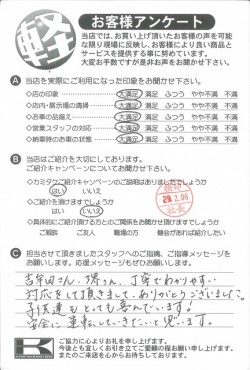 軽
お客様アンケート
当店では、お買い上げ頂いたお客様の声を可能
な限り現場に反映し、お客様により良い商品と
サービスを提供する事に努めています。
大変お手数ですが是非お声をお聞かせ下さい。
A 当店を実際にご利用になった印象をお聞かせ下さい。
◇店の印象 大満足 満足 ふつう やや不満 不満
◇店内・展示場の清掃 大満足 満足 ふつう やや不満 不満
◇お車の品揃え 大満足 満足 ふつう やや不満 不満
◇営業スタッフの対応 大満足 満足 ふつう やや不満 不満
◇納車時のお車の状態 大満足 満足 ふつう やや不満 不満
B 当店はご紹介を大切にしております。
ご紹介キャンペーンについてお聞かせ下さい。
◇カミタケご紹介キャンペーンのご説明はありましたでしょうか
はい いいえ
◇ご紹介を頂けますでしょうか
はい いいえ
29.2.06
◇具体的にご紹介頂ける方とのご関係をお聞かせ頂けますでしょうか
ご親族 ご友人 職場の方 機会があれば紹介したい
C 担当させて頂きましたスタッフへのご指摘、ご指導メッセージを
お願いします。応援メッセージもぜひお願いします。
吉年田さん、堺さん、丁寧でわかりやすい
対応をして頂きまして、ありがとうございました。
子供達もとっても喜んでいます!
安全に運転していきたいと思います。
K
ご協力に心よりお礼を申し上げます。
今後とも宜しくお引き立てご愛顧の程お願い申し上げます。
またのご来店を心からお待ちしております。